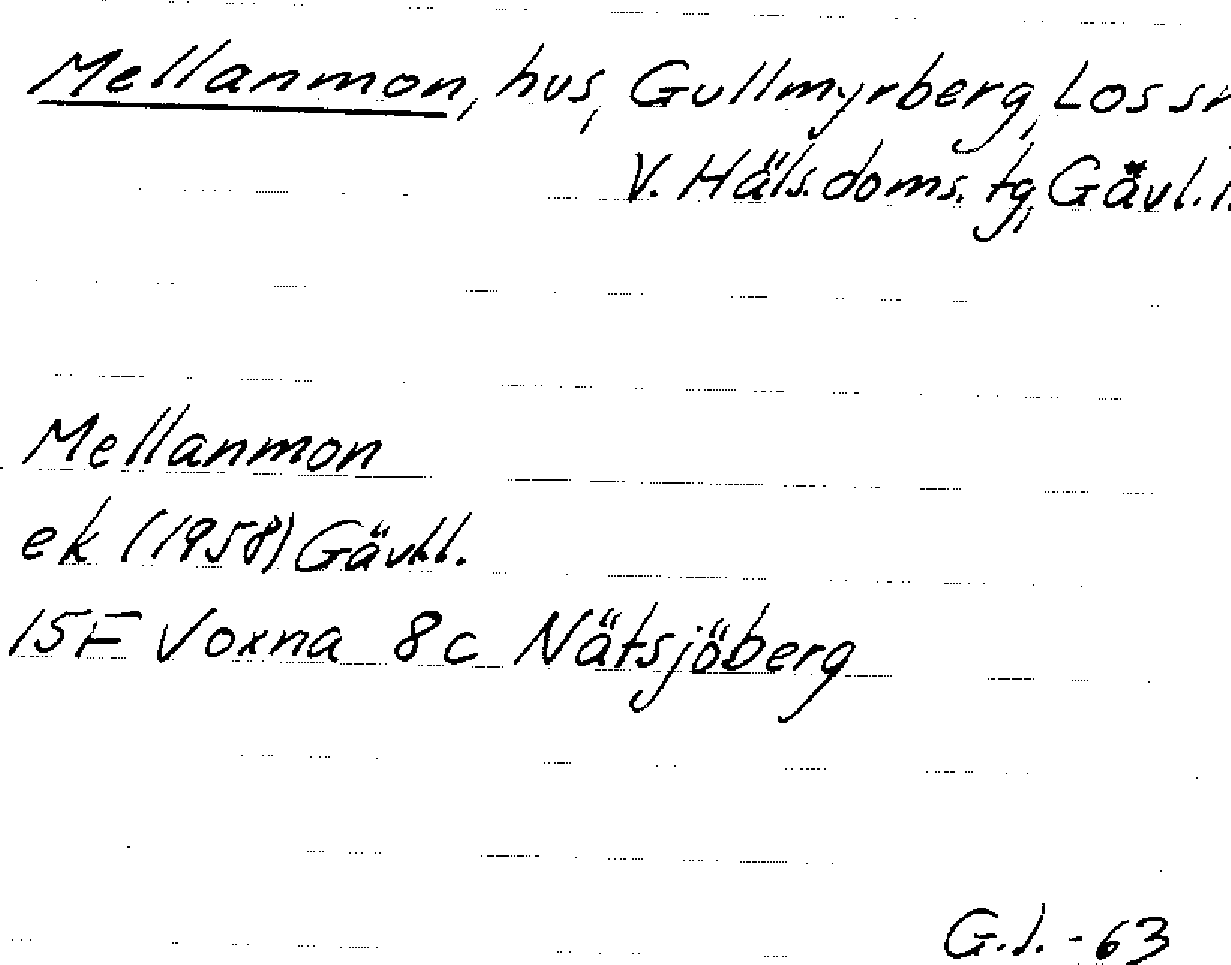 Mellanmon, hus, Gullmyrberg, Los sn
V. Häls. doms. tg, Gävl. l.
Mellanmon
ek (1958) Gävl.l.
15F Voxna 8c Nätsjöberg
G.J. -63